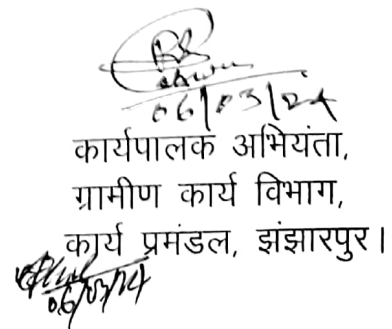 06/03/24
कार्यपालक अभियंता,
ग्रामीण कार्य विभाग,
कार्य प्रमंडल, झंझारपुर।
06/03/24